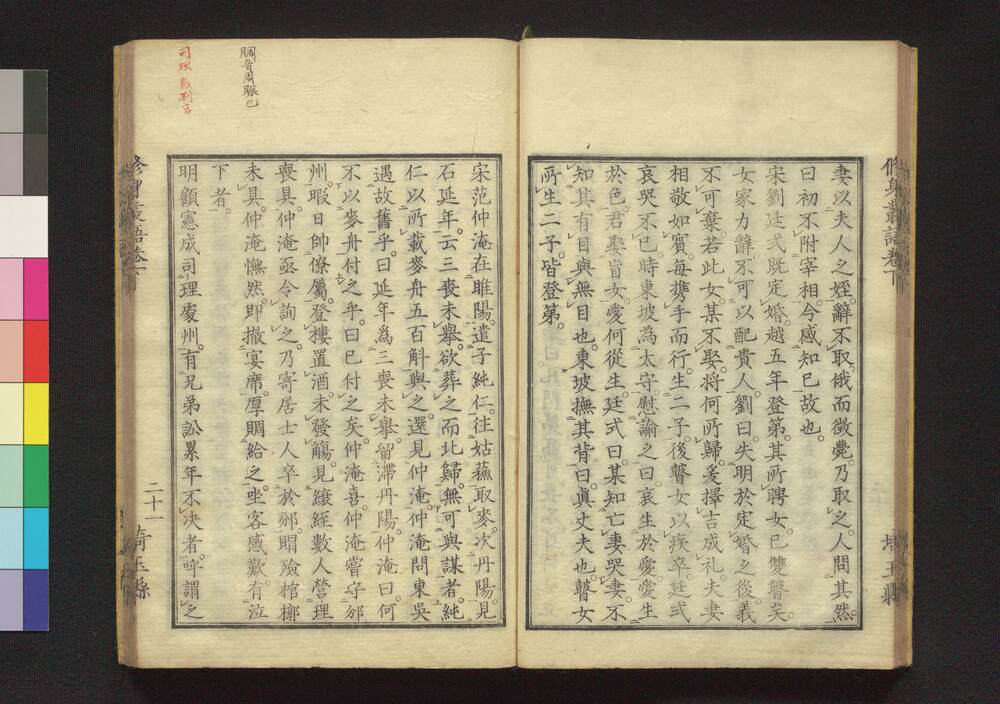 妻以夫人之姪。辭不取。俄而徵薨。乃取之。人問其然。
曰初不附宰相。今感知已故也。
宋劉廷式既定婚。越五年登第。其所聘女。已雙瞽矣。
女家力辭。不可以配貴人。劉曰。失明於定婚之後。義
不可棄。若此女。某不娶。將何所歸。爰擇吉成礼。夫妻
相敬如賓。每携手而行。生二子。後瞽女以疾卒。廷式
哀哭不已。時東坡為太守。慰諭之曰。哀生於愛。愛生
於色。君娶盲女。愛何從生。廷式曰。某知亡妻哭妻。不
知其有目與無目也。東坡撫其背曰。眞丈夫也。瞽女
所生二子。皆登第。
修身叢語巻下
宋范仲淹在睢陽。遣子純仁。往姑蘓取麥。次丹陽。見
石延年。云三喪未舉。欲葬之而北歸。無可與謀者。純
仁以所載麥舟五百斛與之。還見仲淹。仲淹問東吳
遇故舊乎。曰延年為三喪未舉。留滯丹陽。仲淹曰何
不以麥舟付之乎。曰已付之矣。仲淹喜。仲淹嘗守邠
州。暇日帥僚屬。登樓置酒。未發觴。見縗絰數人營理
喪具。仲淹亟令詢之。乃寄居士人卒於邠。賵殮棺槨
未具。仲淹憮然即撤宴席。厚賙給之。坐客感歎。有泣
下者。
明顧憲成司理處州。有兄弟訟累年不决者。呼謂之
賙音周賑也
司理 裁判官
二十一